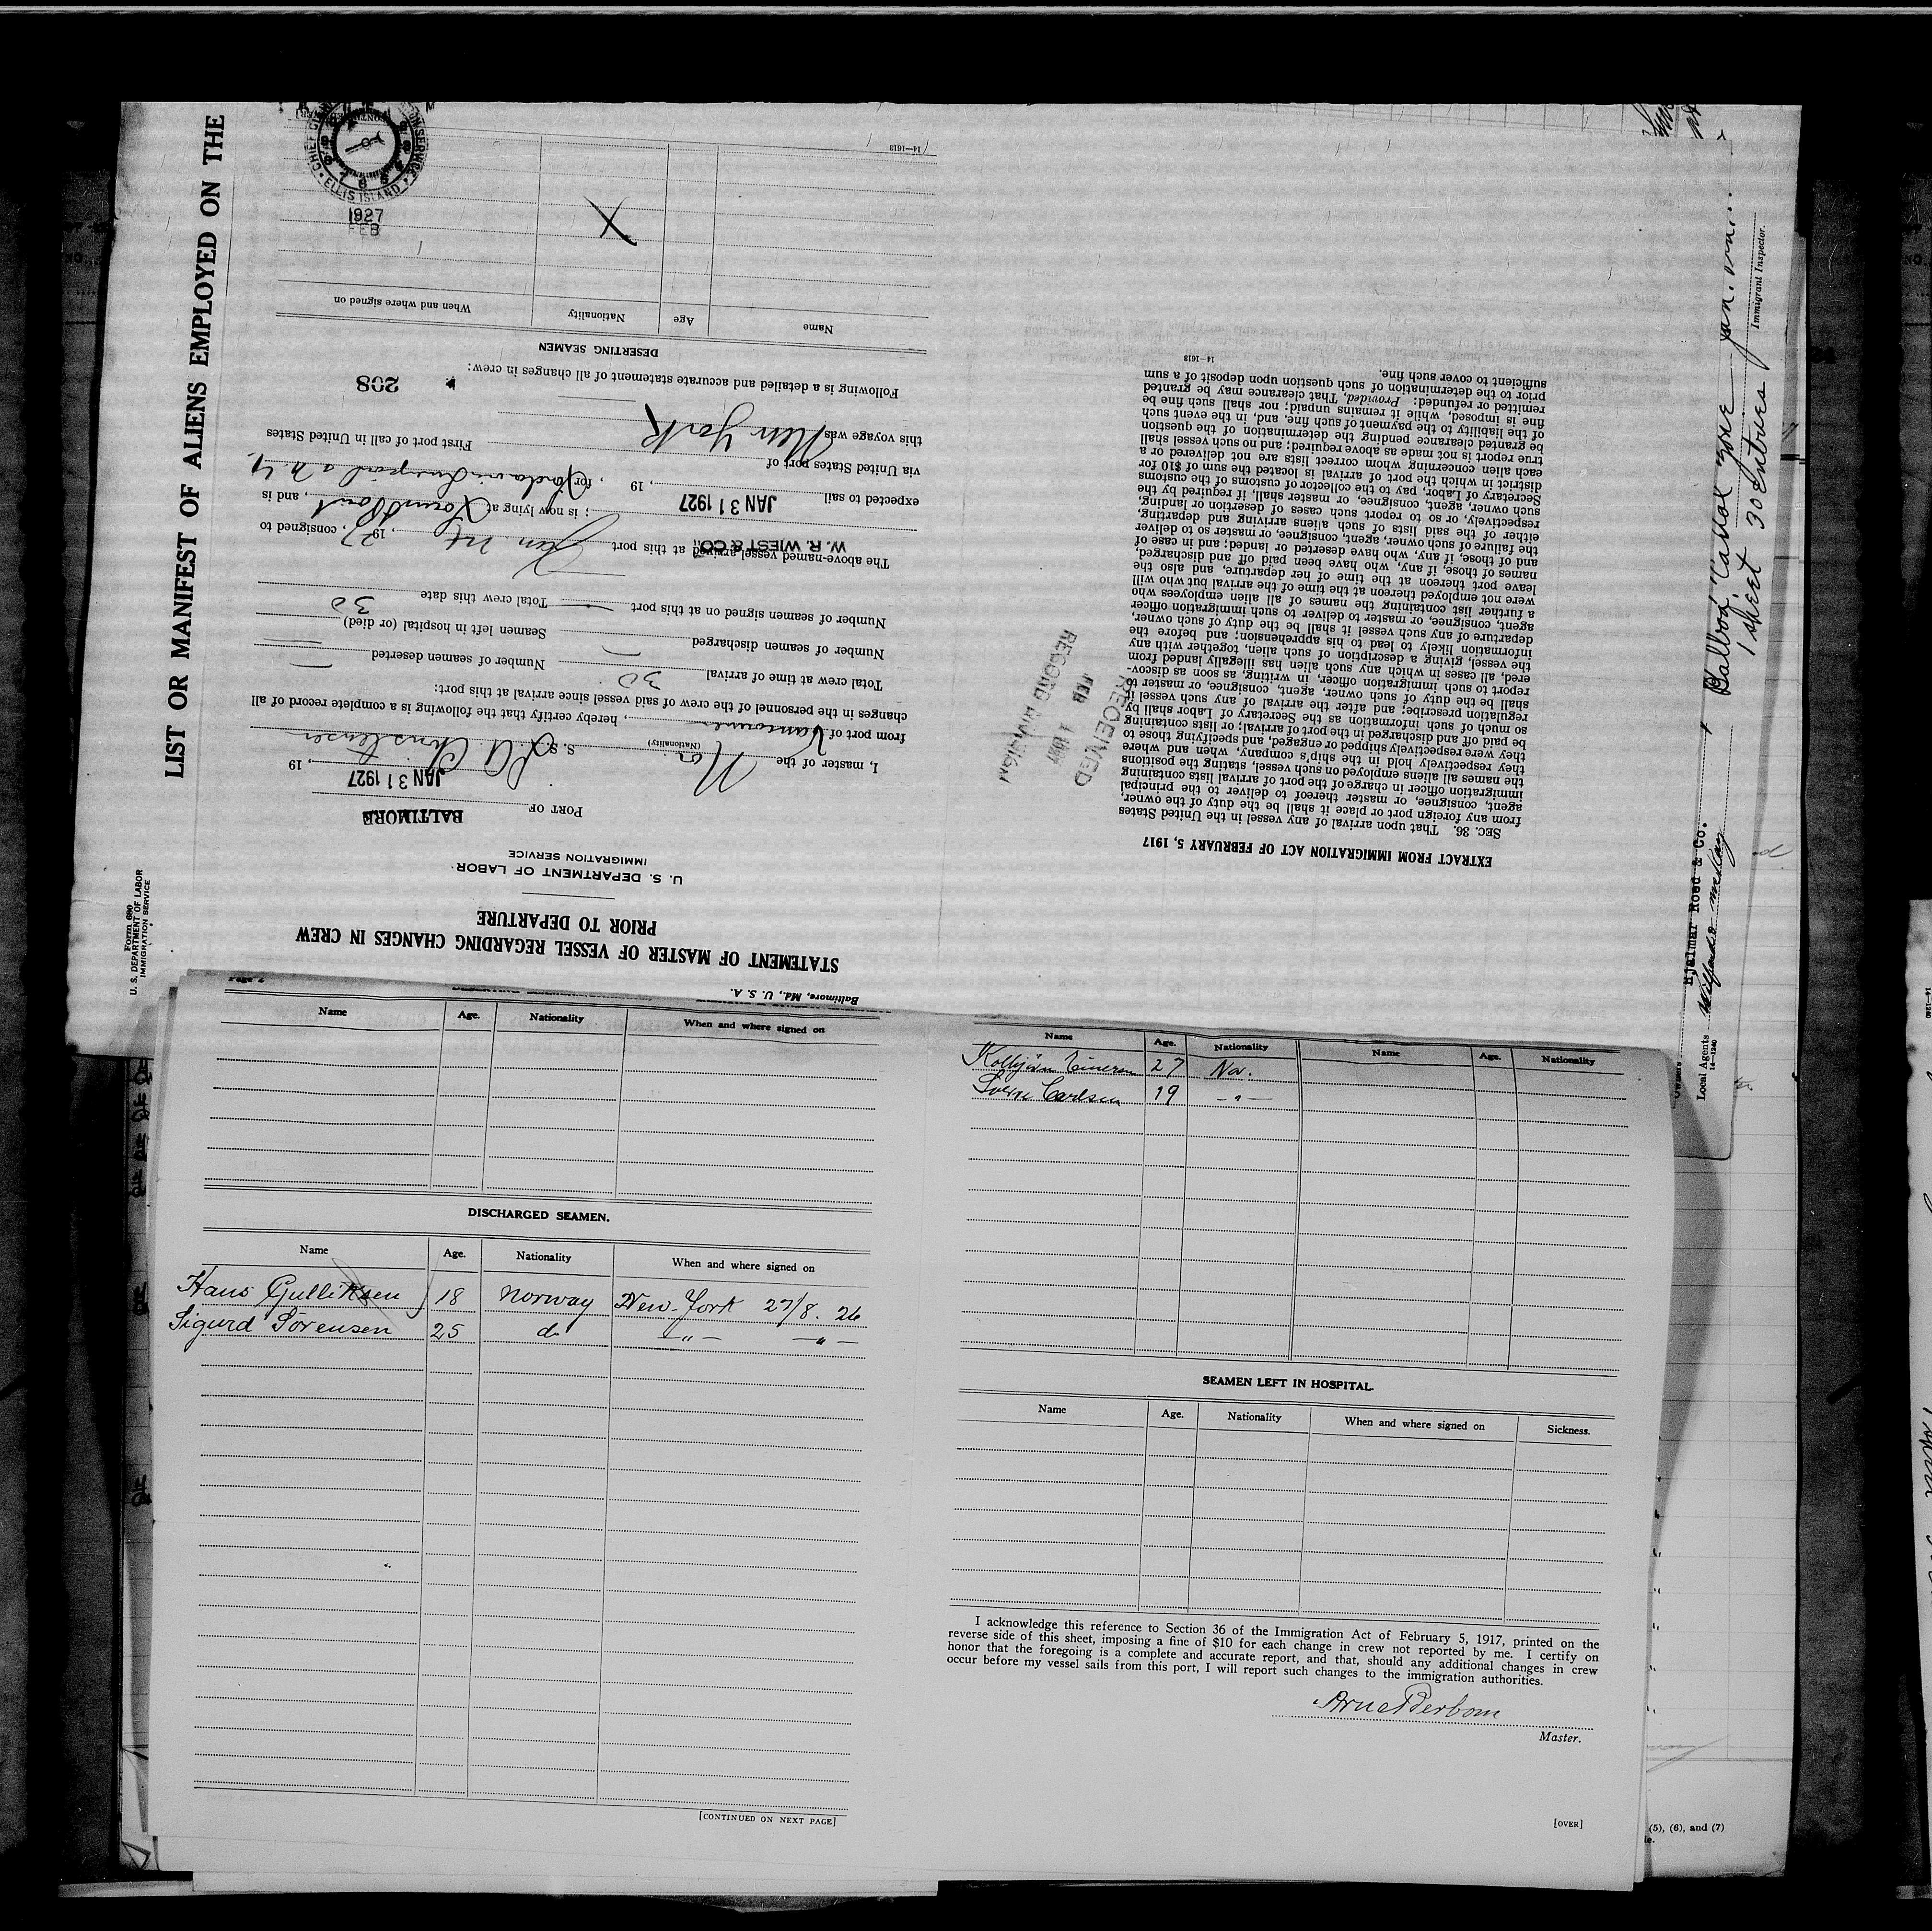 LIST OR MANIFEST OF ALIENS EMPLOYED ON THE
Form 680
U. S. DEPARTMENT OF LABOR
IMMIGRATION SERVICE
STATEMENT OF MASTER OF VESSEL REGARDING CHANGES IN CREW
PRIOR TO DEPARTURE
U. S. DEPARTMENT OF LABOR
IMMIGRATION SERVICE
PORT OF BALTIMORE
JAN 31 1927, 19
I, master of the Nor. (Nationality) S. S.
from port of Vancouver, hereby certify that the following is a complete record of all
changes in the personnel of the crew of said vessel since arrival at this port:
Total crew at time of arrival 30 Number of seamen deserted —
Number of seamen discharged — Seamen left in hospital (or died) —
Number of seamen signed on at this port — Total crew this date 30
The above-named vessel arrived at this port Jan., 1927, consigned to
W. R. WIEST & CO.; is now lying at Point, and is
expected to sail JAN 31 1927, 19 , for
via United States port of New York First port of call in United States
this voyage was
Following is a detailed and accurate statement of all changes in crew:
208
DESERTING SEAMEN
Name Age Nationality When and where signed on
X
14—1613
CHIEF
ELLIS ISLAND
1927
FEB
EXTRACT FROM IMMIGRATION ACT OF FEBRUARY 5, 1917
SEC. 36. That upon arrival of any vessel in the United States
from any foreign port or place it shall be the duty of the owner,
agent, consignee, or master thereof to deliver to the principal
immigration officer in charge of the port of arrival lists containing
the names of all aliens employed on such vessel, stating the positions
they respectively hold in the ship's company, when and where
they were respectively shipped or engaged, and specifying those to
be paid off and discharged in the port of arrival; or lists containing
so much of such information as the Secretary of Labor shall by
regulation prescribe; and after the arrival of any such vessel it
shall be the duty of such owner, agent, consignee, or master to
report to such immigration officer, in writing, as soon as discov-
ered, all cases in which any such alien has illegally landed from
the vessel, giving a description of such alien, together with any
information likely to lead to his apprehension; and before the
departure of any such vessel it shall be the duty of such owner,
agent, consignee, or master to deliver to such immigration officer
a further list containing the names of all alien employees who
were not employed thereon at the time of the arrival but who will
leave port thereon at the time of her departure, and also the
names of those, if any, who have been paid off and discharged,
and of those, if any, who have deserted or landed; and in case of
the failure of such owner, agent, consignee, or master so to deliver
either of the said lists of such aliens arriving and departing,
respectively, or so to report such cases of desertion or landing,
such owner, agent, consignee, or master shall, if required by the
Secretary of Labor, pay to the collector of customs of the customs
district in which the port of arrival is located the sum of $10 for
each alien concerning whom correct lists are not delivered or a
true report is not made as above required; and no such vessel shall
be granted clearance pending the determination of the question
of the liability to the payment of such fine, and, in the event such
fine is imposed, while it remains unpaid; nor shall such fine be
remitted or refunded: Provided, That clearance may be granted
prior to the determination of such question upon deposit of a sum
sufficient to cover such fine.
14—1613
RECEIVED
FEB 1 1927
RECORD DIVISION
Balboa, Canal Zone
1 sheet 30 Entries
Immigrant Inspector.
Hjalmar Roed & Co.
Local Agents
14—1240
Page 2
Baltimore, Md., U. S. A.
Name Age. Nationality When and where signed on
DISCHARGED SEAMEN.
Name Age. Nationality When and where signed on
Hans Gulliksen 18 Norway New-York 27/8. 26
Sigurd Sörensen 25 do —"— —"—
[CONTINUED ON NEXT PAGE]
Name Age. Nationality Name Age. Nationality
Kolbjörn Einersen 27 Nor.
Sverre Carlsen 19 —"—
SEAMEN LEFT IN HOSPITAL.
Name Age. Nationality When and where signed on Sickness.
I acknowledge this reference to Section 36 of the Immigration Act of February 5, 1917, printed on the
reverse side of this sheet, imposing a fine of $10 for each change in crew not reported by me. I certify on
honor that the foregoing is a complete and accurate report, and that, should any additional changes in crew
occur before my vessel sails from this port, I will report such changes to the immigration authorities.
Master.
[OVER]
(5), (6), and (7)